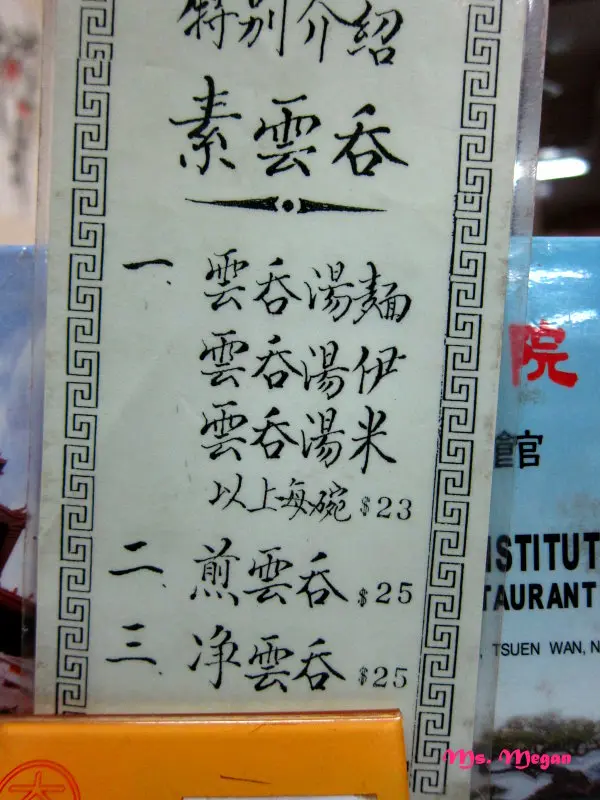 特別介紹
素雲呑
一、雲呑湯麵
雲呑湯伊
雲呑湯米
以上每碗 $23
二、煎雲呑 $25
三、净雲呑 $25
院
館
NSTITUT
TAURANT
TSUEN WAN, N
Ms. Megan